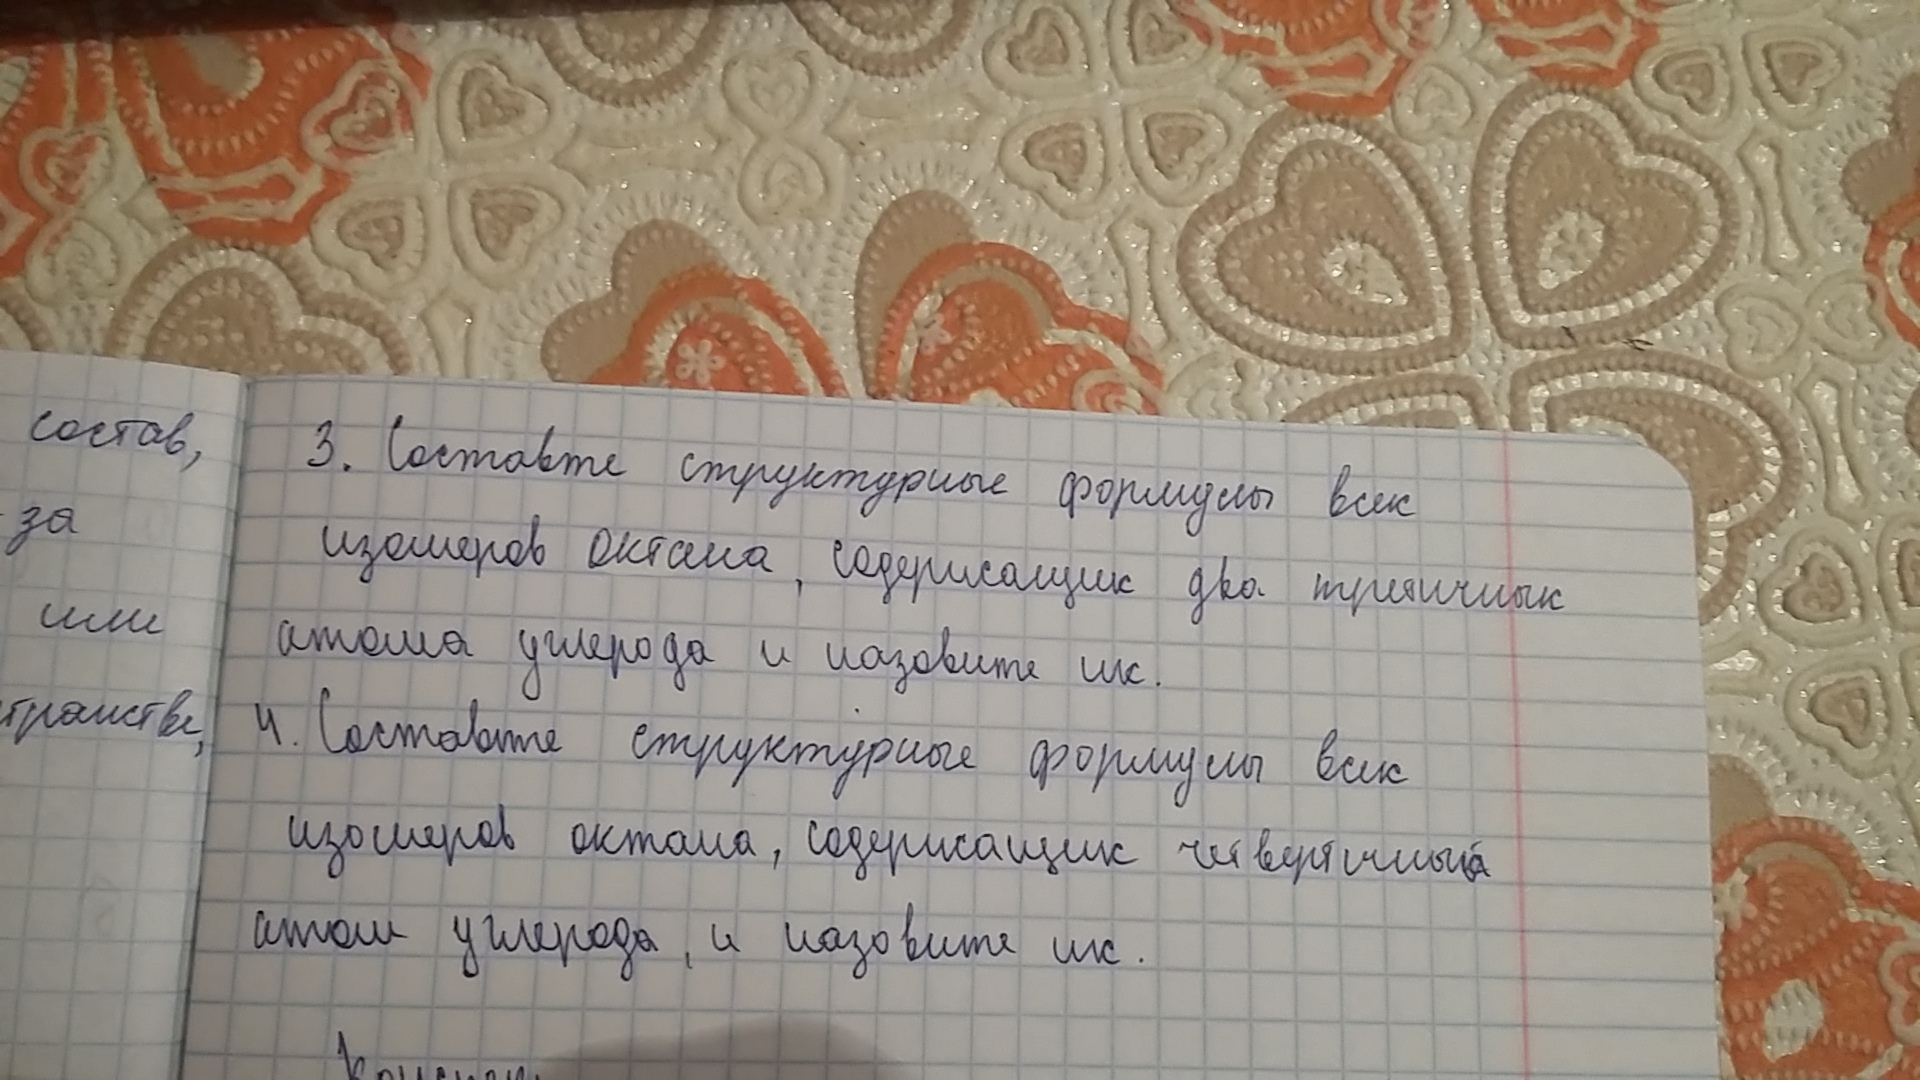 состав,
за
или
странстве,
3. Составте структурные формулы всех
изомеров октана, содержащих два третичных
атома углерода и назовите их.
4. Составите структурные формулы всех
изомеров октана, содержащих четвертичный
атом углерода, и назовите их.